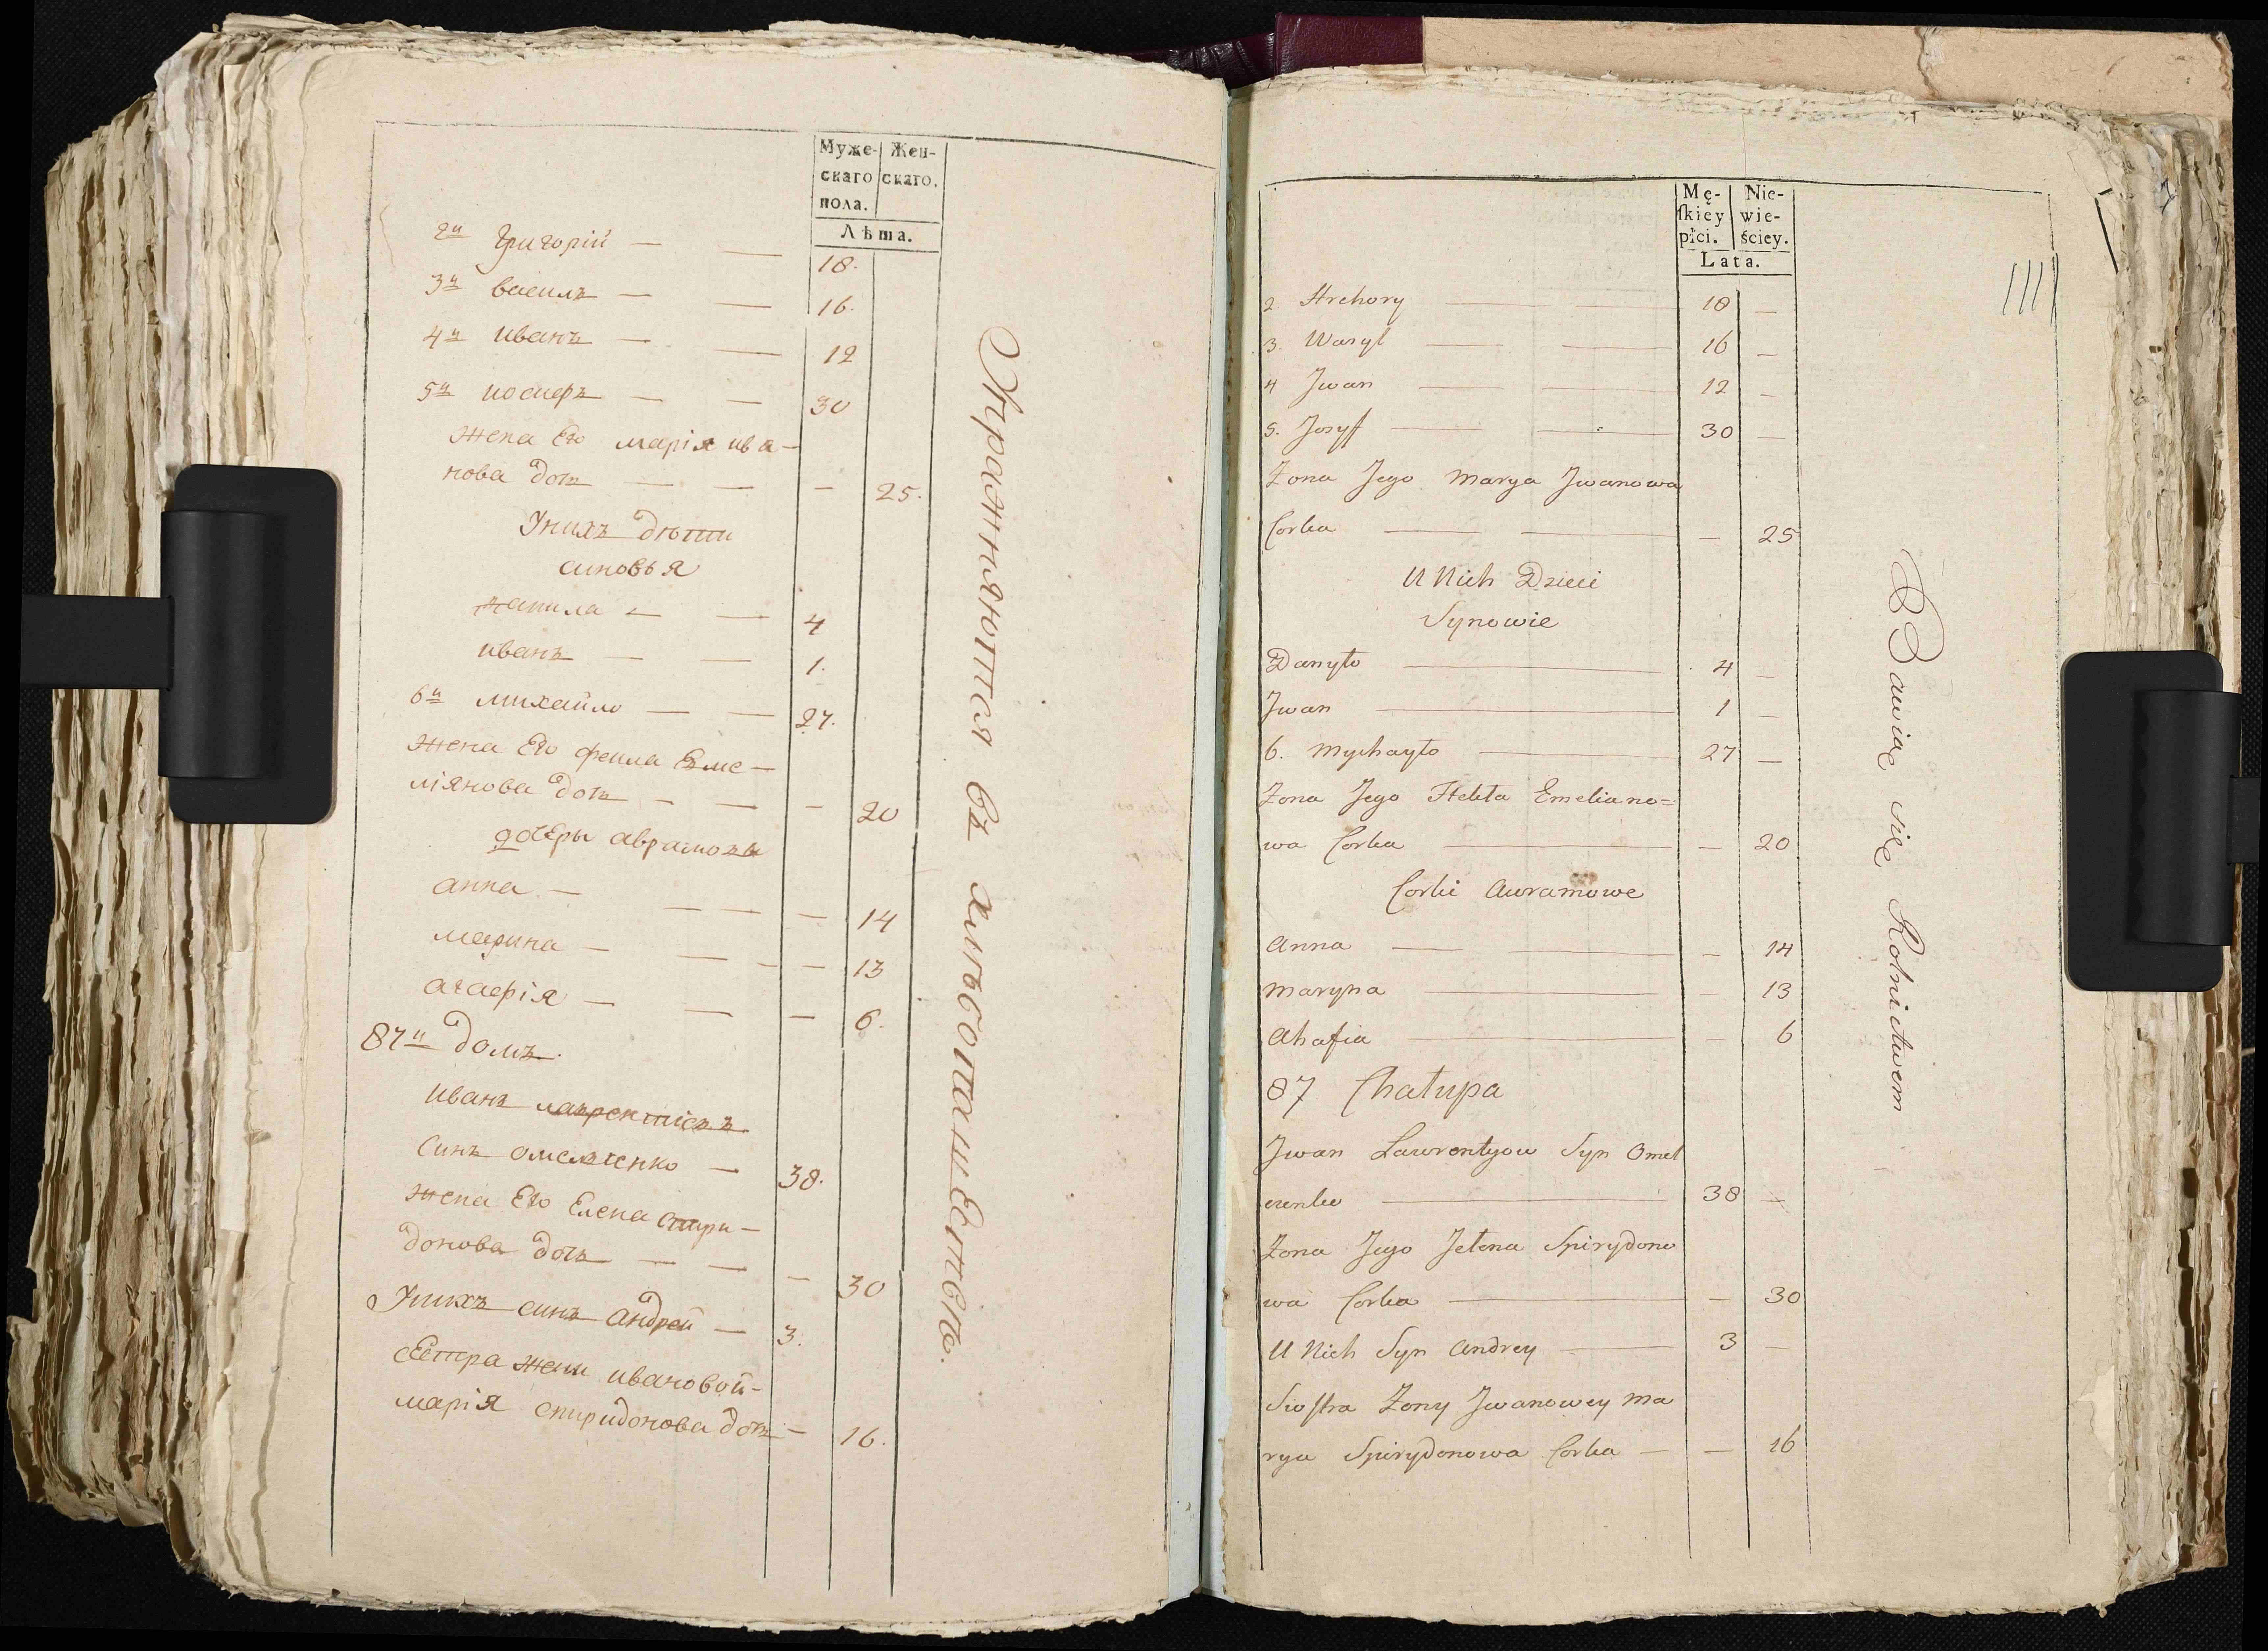 Муже-
скаго
пола.
Жен-
скаго.
Лѣта.
2й Григорій — — 18.
3й василъ — — 16.
4й иванъ — — 12
5й иосифъ — — 30
жена Его марія ива-
нова дочь — — — 25.
Унихъ дѣти
синовья
данила — — 4
иванъ — — 1.
6й михайло — — 27.
жена Его фекла Еме-
лiянова дочь — — — 20
дочЕры аврамови
анна — — — 14
марина — — — 13
агафія — — — 6.
87й домъ.
иванъ лаврентіевъ
синъ омелченко — 38.
жена Его Елена спири-
донова дочь — — — 30
Унихъ синъ андрей — 3.
сЕстра жени ивановой-
марія спиридонова дочь — 16.
Упражняются въ хлѣбопашЕствѣ.
Mę-
ſkiey
płci.
Nie-
wie-
ściey.
Lata.
2 Hrehory — — 18 —
3. Wasyl — — 16 —
4 Jwan — — 12 —
5. Jozyff — — 30 —
Zona Jego Marya Jwanowa
Corka — — — 25
U Nich Dzieci
Synowie
Danyło — 4 —
Jwan — 1 —
6. Mychayło — 27 —
Zona Jego Thekla Emeliano=
wa Corka — — 20
Corki Awramowe
Anna — — — 14
Maryna — — 13
Ahafia — — 6
87 Chałupa
Jwan Lawrentyow Syn Omel
czenko — 38 —
Zona Jego Jelena Spirydono
wa Corka — — 30
U Nich Syn Andrey — 3 —
Sioſtra Zony Jwanowey Ma
rya Spirydonowa Corka — — 16
Bawią się Rolnictwem